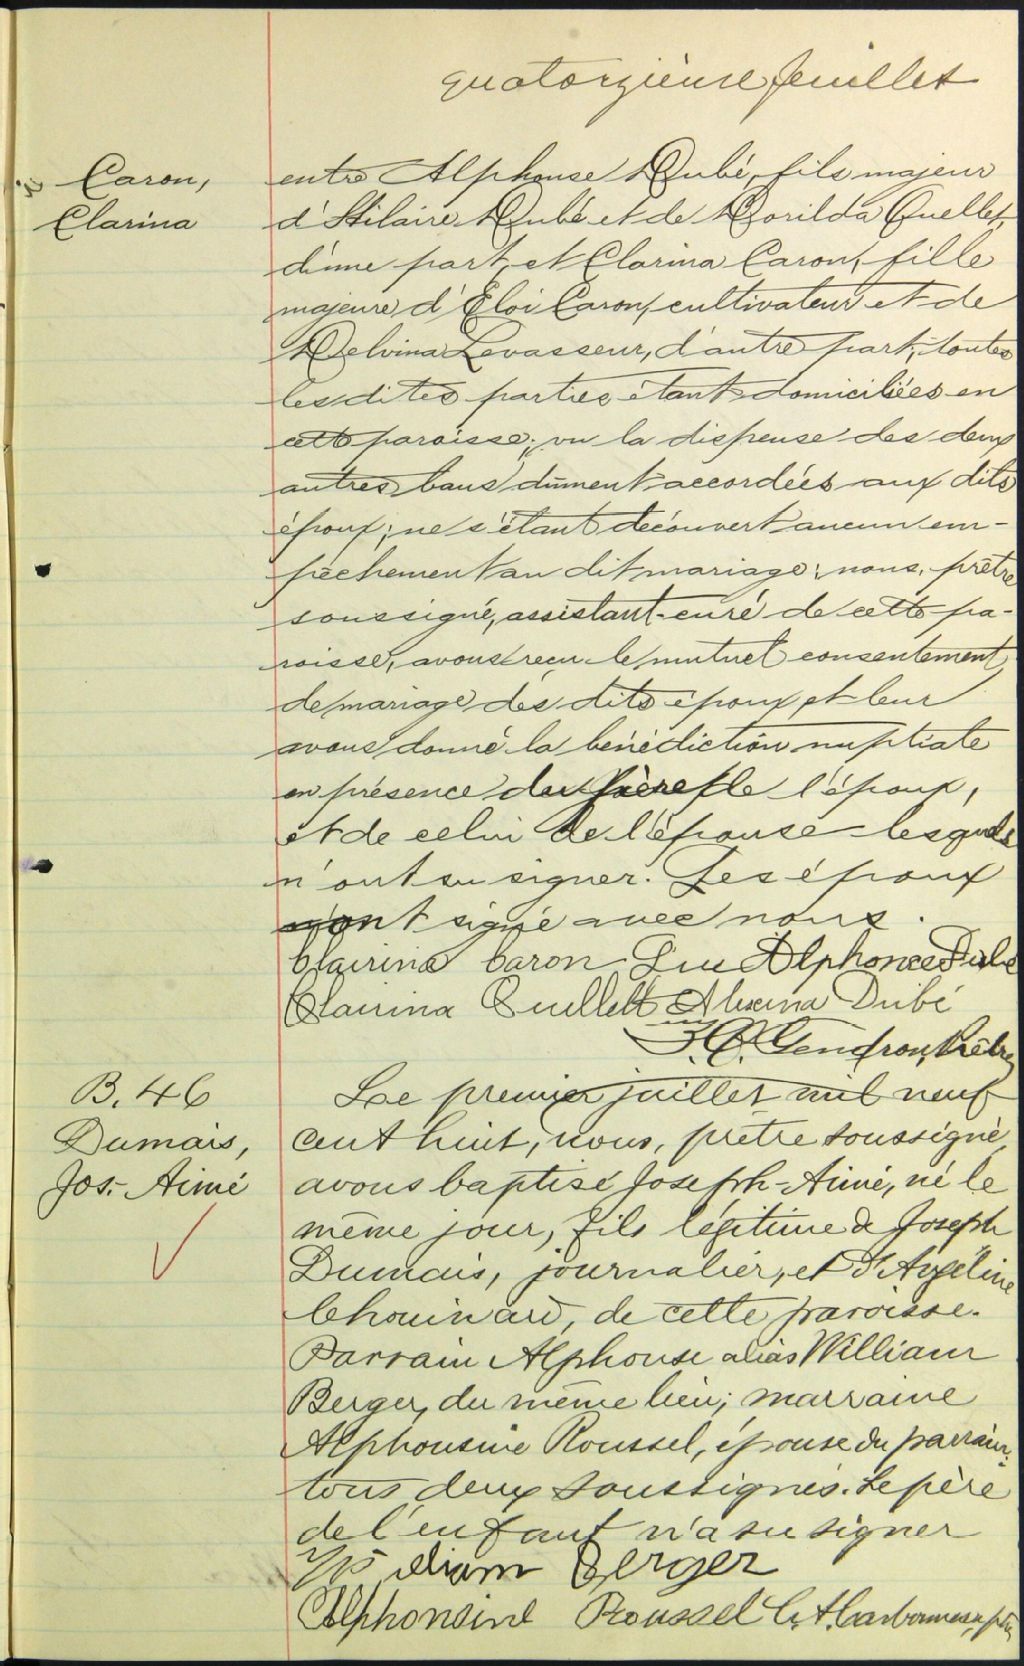 quatorzième feuillet
Caron,
Clarina
entre Alphonse Dubé, fils majeur
d'Hilaire Dubé et de Dorilda Ouellet,
d'une part, et Clarina Caron, fille
majeure d'Eloi Caron, cultivateur et de
Delvina Levasseur, d'autre part; toutes
les dites parties étant domiciliées en
cette paroisse; vu la dispense des deux
autres bans dûment accordées aux dits
époux; ne s'étant découvert aucun em-
pêchement au dit mariage; nous, prêtre
soussigné, assistant-curé de cette pa-
roisse, avons reçu le mutuel consentement
de mariage des dits époux et leur
avons donné la bénédiction nuptiale
en présence du père de l'époux,
et de celui de l'épouse lesquels
n'ont su signer. Les époux
ont signé avec nous.
Clairina Caron Alphonce Dubé
Clairina Ouellett Alexina Dubé
Gendron, Prêtre
B. 46
Dumais,
Jos.-Aimé
Le premier juillet mil neuf
cent huit, nous, prêtre soussigné,
avons baptisé Joseph-Aimé, né le
même jour, fils légitime de Joseph
Dumais, journalier, et d'Angéline
Chouinard, de cette paroisse.
Parrain Alphonse alias William
Berger, du même lieu; marraine
Alphonsine Roussel, épouse du parrain,
tous deux soussignés. Le père
de l'enfant n'a su signer
William Berger
Alphonsine Roussel C. A. Carbonneau, ptre